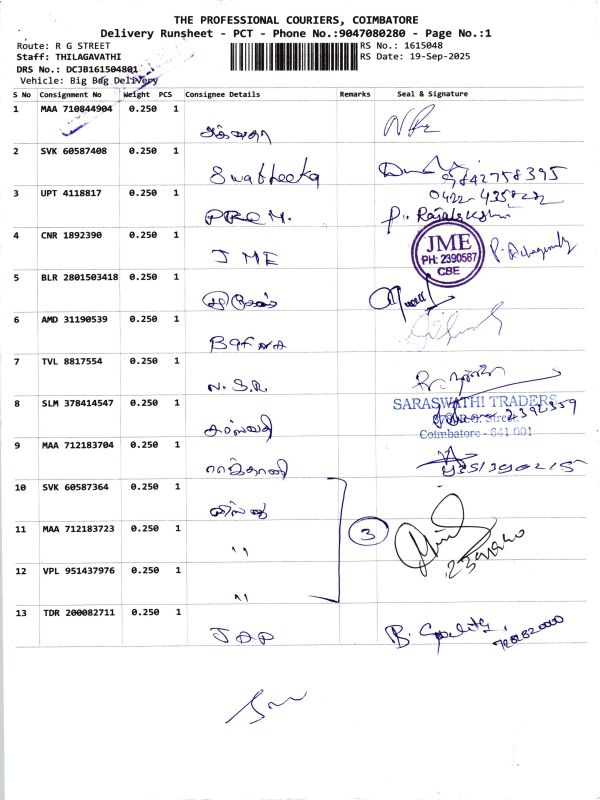 THE PROFESSIONAL COURIERS, COIMBATORE
Delivery Runsheet - PCT - Phone No.:9047080280 - Page No.:1
Route: R G STREET
RS No.: 1615048
Staff: THILAGAVATHI
RS Date: 19-Sep-2025
DRS No.: DCJB161504801
Vehicle: Big Bag Delivery
S No Consignment No Weight PCS Consignee Details Remarks Seal & Signature
1 MAA 710844904 0.250 1
2 SVK 60587408 0.250 1
Swatheeka 9842758395
3 UPT 4118817 0.250 1
PREM. P. Rajalakshmi
4 CNR 1892390 0.250 1
JME
JME
PH: 2390587
CBE
5 BLR 2801503418 0.250 1
6 AMD 31190539 0.250 1
Bafna
7 TVL 8817554 0.250 1
N.S.R.
8 SLM 378414547 0.250 1
SARASWATHI TRADERS
2392359
R.G. Street
Coimbatore - 641 001
சரஸ்வதி
9 MAA 712183704 0.250 1
ராஜ்தானி
10 SVK 60587364 0.250 1
11 MAA 712183723 0.250 1
" 3
12 VPL 951437976 0.250 1
"
13 TDR 200082711 0.250 1
JAP